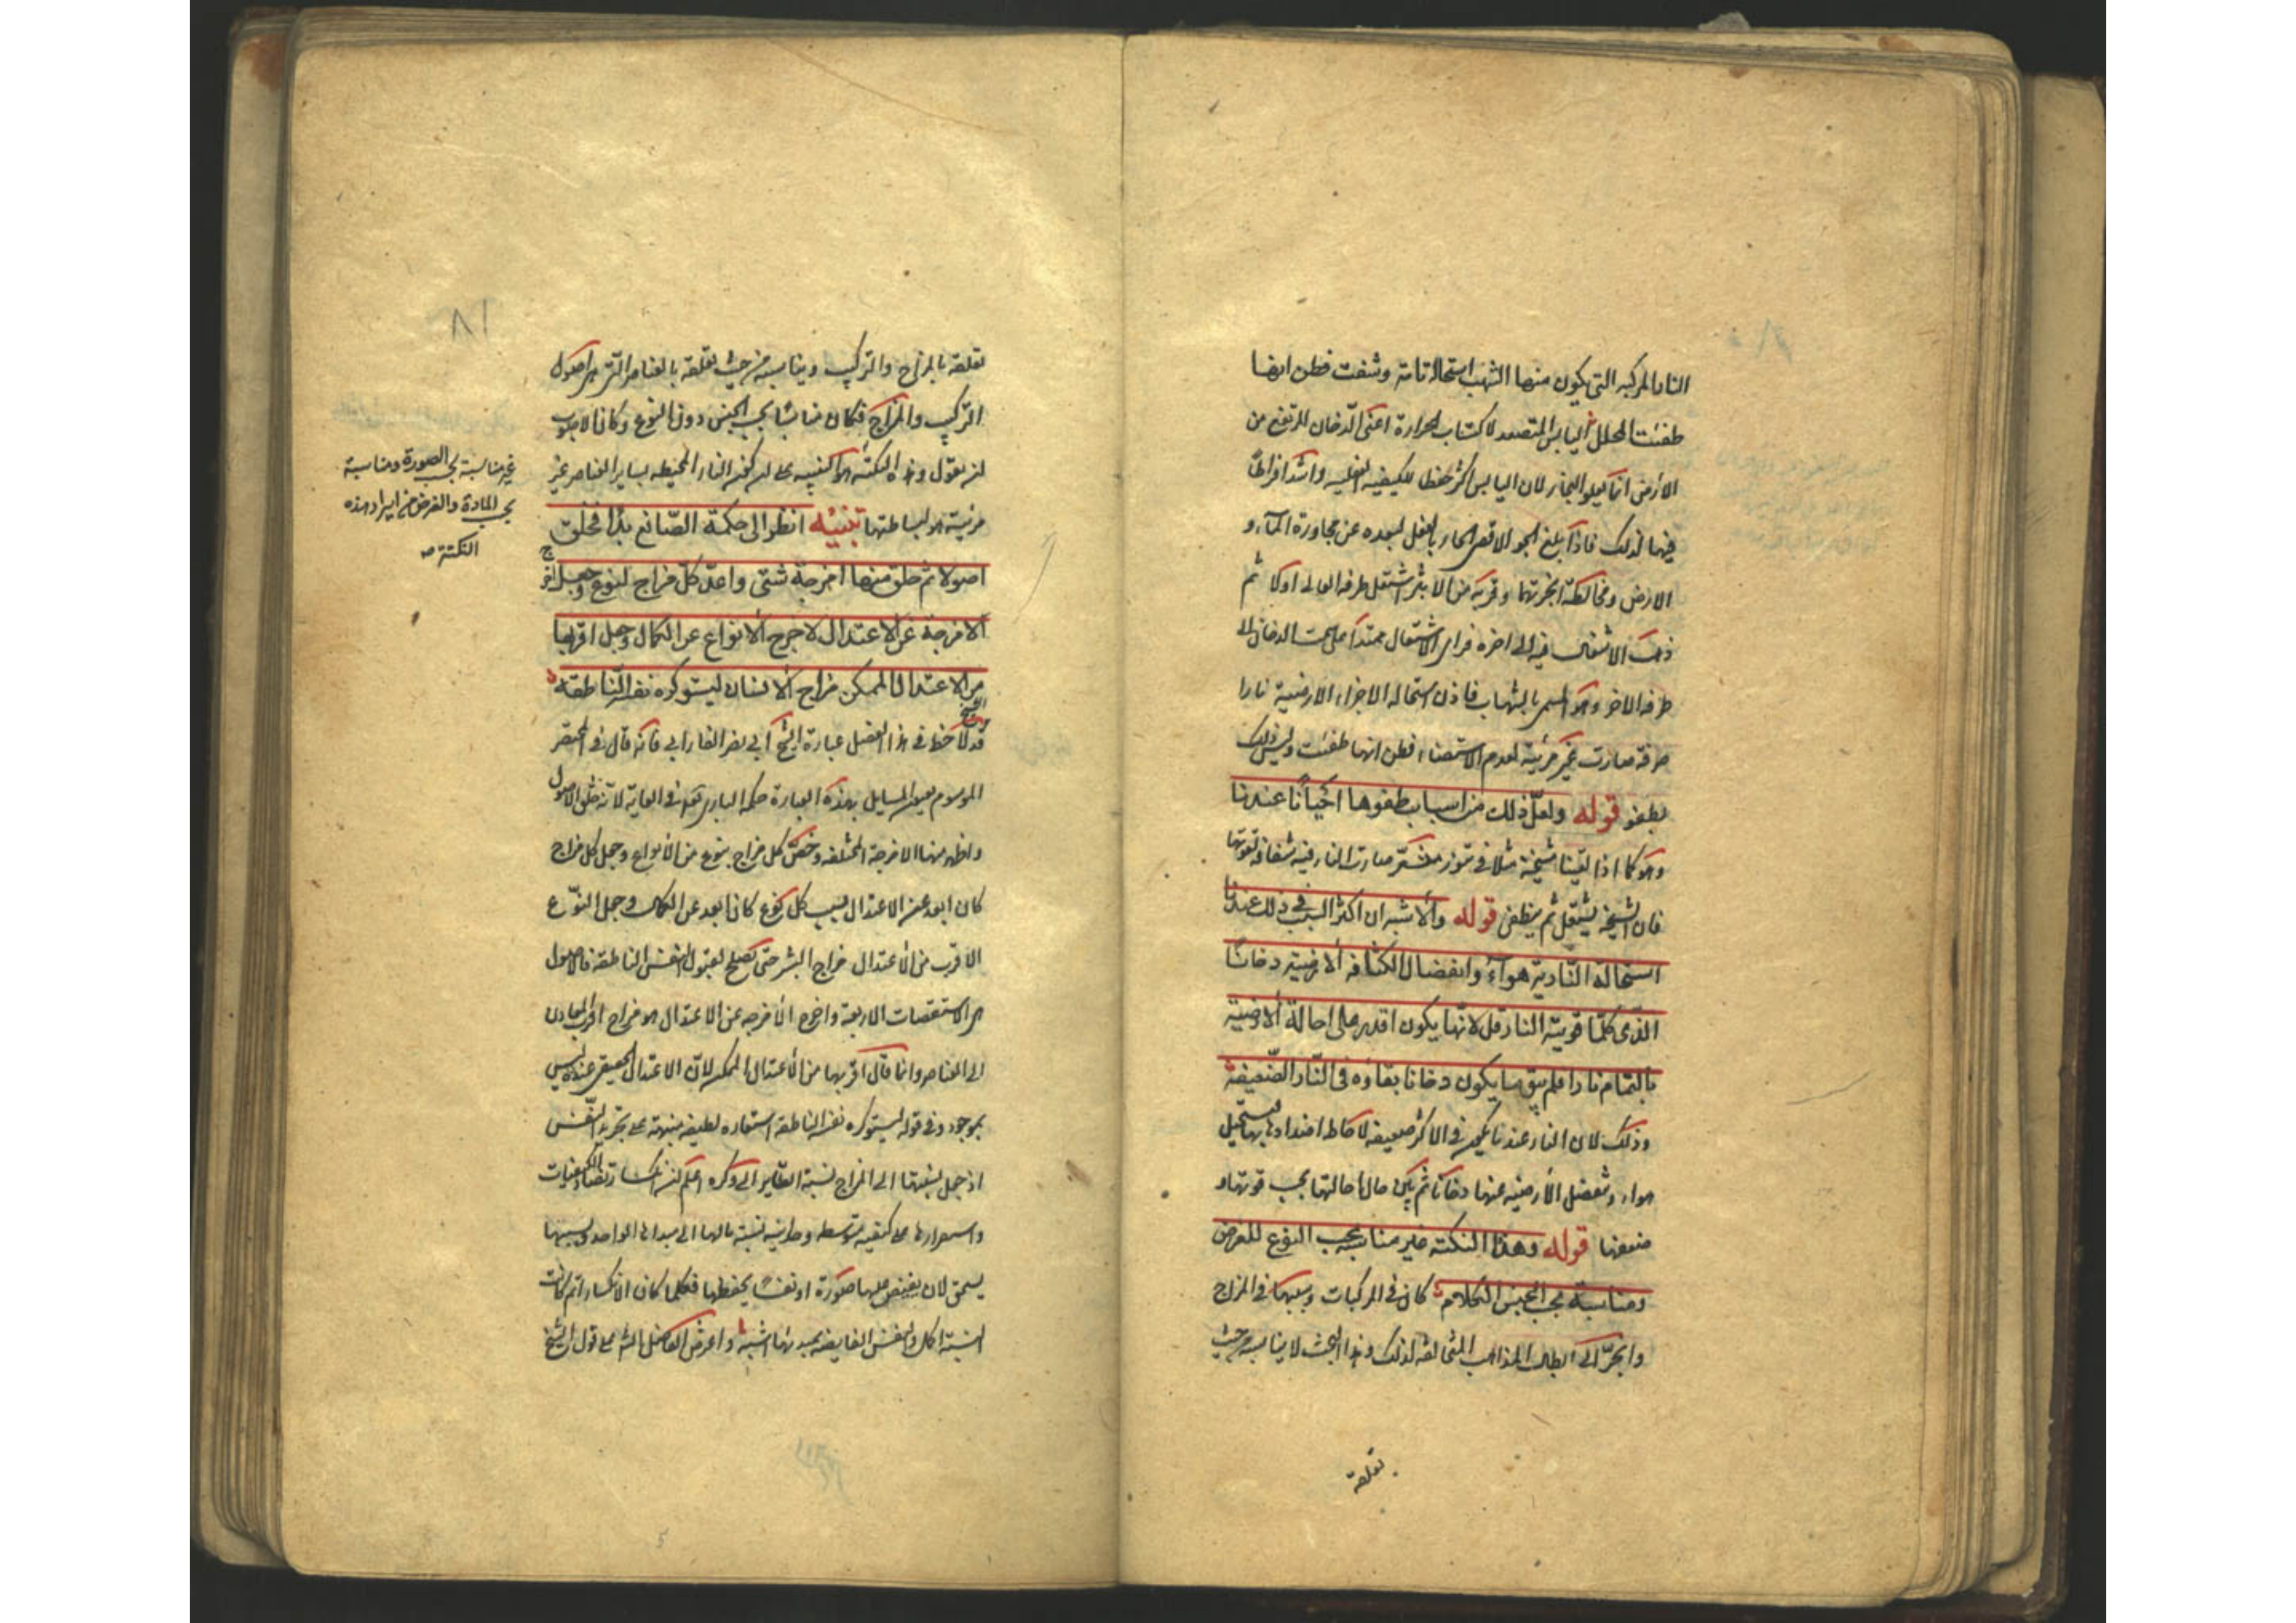 النار المركبه التي يكون منها الشهب استحالة تامة وشفت فظن انها
طفئت المحلل اليابس المتصعد لاكتساب الحرارة اعنى الدخان المرتفع من
الارض انما يعلو البخار لان اليابس اكثر حفظا للكيفية الفعلية واشد افراطا
فيها لذلك فاذا بلغ الجو الاقصى الحار بالفعل لبعده عن مجاورة الماء و
الارض ومخالطة ابخرتهما وقربه من الاثير اشتعل طرفه العالى اولا ثم
ذهب الاشتعال فيه الى اخره فراى الاشتعال ممتدا على سمت الدخان الى
طرفه الاخر وهو المسمى بالشهاب فاذن استحاله الاجزاء الارضية نارا
صرفة صارت غير مرئية لعدم الاستضاء فظن انها طفئت وليس ذلك
بطفو قوله ولعل ذلك من اسباب طفوها احيانا عندنا
وهو كما اذا القينا شيحة مثلا في تنور مسعر صارت النار فيه شفافة لقوتها
فان الشيحة يشتعل ثم ينطفى قوله والاشبه ان اكثر السبب في ذلك عندنا
استحالة النارية هواء وانفصال الكثافة الارضية دخانا
الذى كلما قويت النار قل لانها يكون اقدر على احالة الارضية
بالتمام نارا فلم يبق ما يكون دخانا بقاؤه فى النار الضعيفة
وذلك لان النار عندنا يكون في الاكثر ضعيفه لاحاطة اضدادها بها فيستحيل
هواء وينفصل الأرضيه عنها دخانا ثم يكون حال احالتها بحسب قوتها و
ضعفها قوله وهذا النكتة غير مناسبة بحسب النوع للغرض
ومناسبة بحسب الجنس الكلام كان في المركبات وسببها في المزاج
وانجر الى ابطال المذاهب المخالفة لذلك وهذا البحث لا يناسبه من حيث
تعلقه
٨١
تعلقه بالمزاج والتركيب ويناسبه من حيث تعلقه بالعناصر التى هى اصول
التركيب والمزاج فكان مناسبا بحسب الجنس دون النوع وكان الاصوب
ان يقول وهذه النكتة هو التنبيه على ان كون النار المحيطه بساير العناصر غير
مرئية هو لبساطتها تنبيه انظر الى حكمة الصانع بدا فخلق
اصولا ثم خلق منها امزجة شتى واعد كل مزاج لنوع وجعل اخرج
الامزجة عن الاعتدال لاخرج الانواع عن الكمال وجعل اقربها
من الاعتدال الممكن مزاج الانسان ليستوكره نفسه الناطقه
قد لاحظ في هذا الفصل عبارة الشيخ ابى نصر الفارابي فانه قال فى المختصر
الموسوم بعيون المسايل بهذه العبارة حكمة البارى تعالى فى الغاية لانه خلق الاصول
واظهر منها الامزجة المختلفه وخص كل مزاج بنوع من الأنواع وجعل كل مزاج
كان ابعد عن الاعتدال سبب كل نوع كان ابعد عن الكمال وجعل النوع
الاقرب من الأعتدال مزاج البشر حتى يصلح لقبول النفس الناطقة فالاصول
هى الاستقصات الاربعة واخرج الأمزجه عن الاعتدال هو مزاج اقرب المعادن
الى العناصر وانما قال اقربها من الأعتدال الممكن لان الاعتدال الحقيقى عنده ليس
بموجود وفى قوله ليستوكره نفسه الناطقة استعاره لطيفه منبهة على تجرد النفس
اذ جعل نسبتها الى المزاج نسبة الطاير الى وكره اعلم ان انكسار تضاد الكيفيات
واستقرارها على كيفيه متوسطه وحدانيه نسبة ما لها الى مبدائها الواحد وبسببها
يستحق لان يفيض عليها صورة او نفسا يحفظها فكلما كان الانكسار اتم كانت
النسبة اكمل والنفس الفايضه بمبدئها اشبه واعرض الفاضل الشارح على قول الشيخ
غير مناسبة بحسب الصورة ومناسبة
بحسب المادة والغرض من ايراد هذه
النكتة